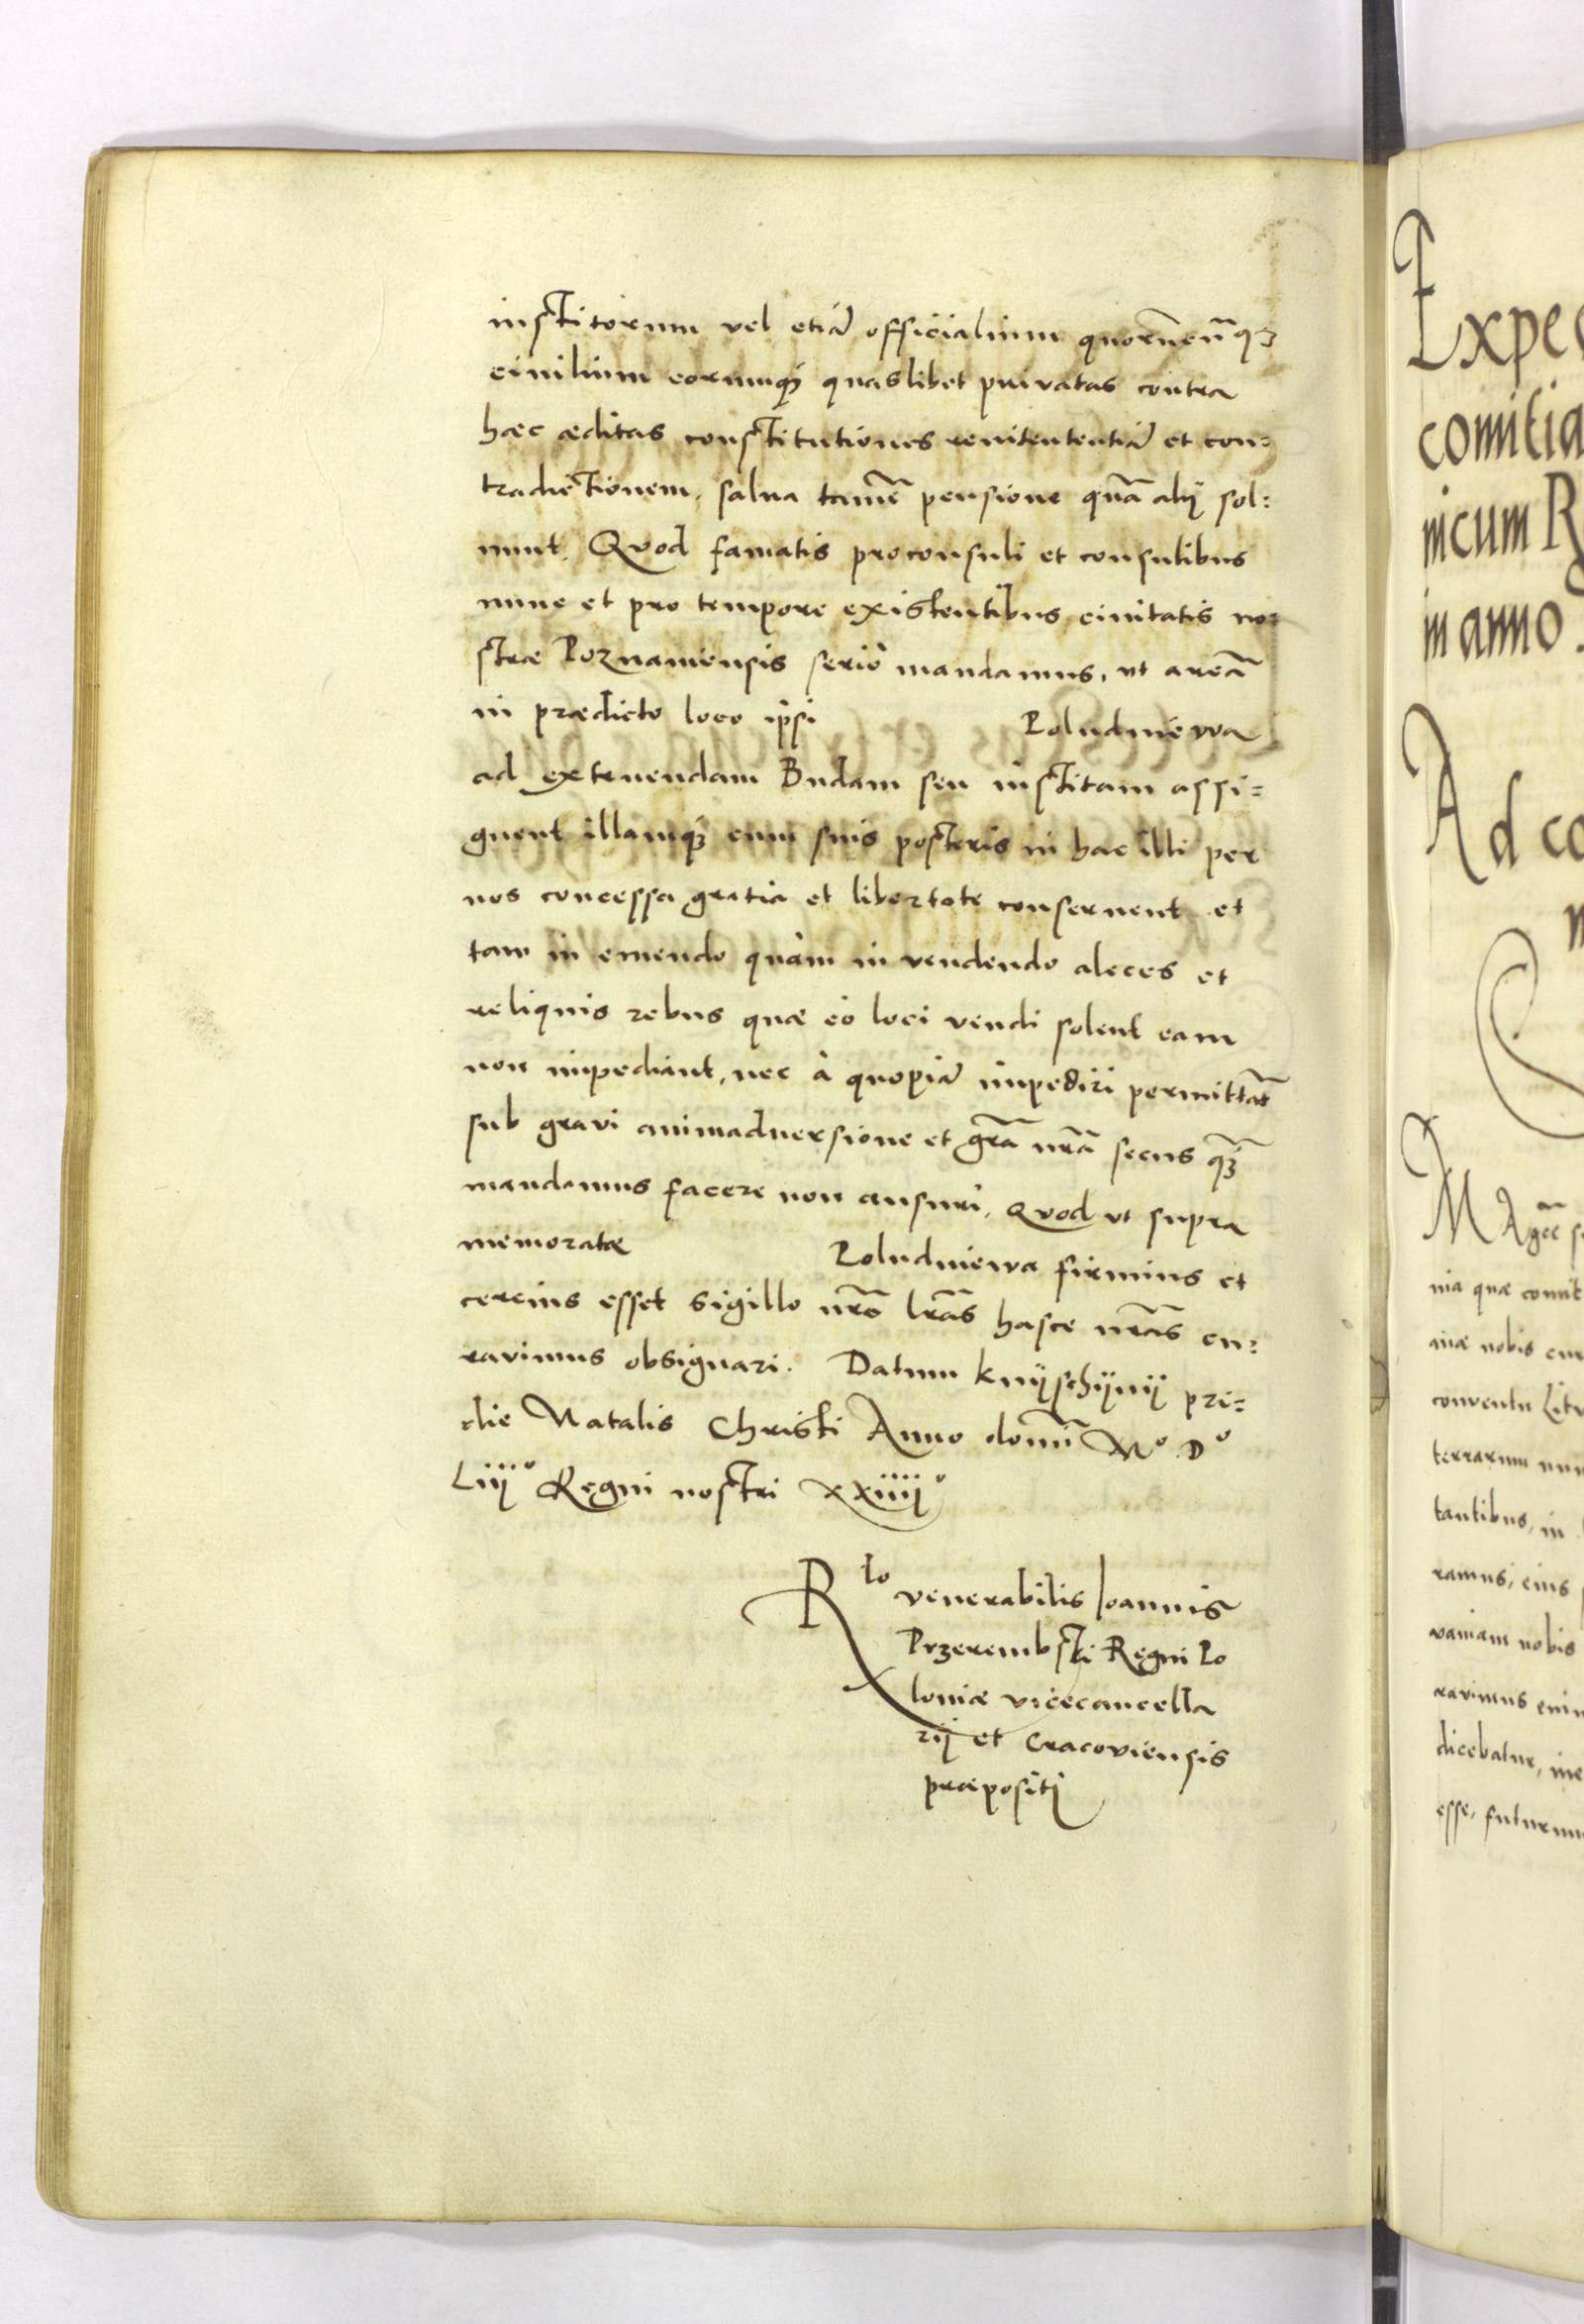 institorum vel etiā officialium quorūcūq3
ciuilium eorumq3 quaslibet priuatas contra
hæc æditas constitutiones renitententiā et con=
tradictionem, salua tamē pensione quā alij sol=
uunt. Quod famatis proconsuli et consulibus
nunc et pro tempore existentibus ciuitatis no=
stræ Poznaniensis seriò mandamus, vt areā
in prædicto loco ipsi Poludniewa
ad extruendam Budam seu institam assi=
gnent illamq3 cum suis posteris in hac illi per
nos concessa gratia et libertate conseruent et
tam in emendo quàm in vendendo aleces et
reliquis rebus quæ eò loci vendi solent eam
non impediant, nec à quopiā impediri permittāt
sub gravi animaduersione et grā nrā secus q̄3
mandamus facere non ausuri, Quod vt supra
memoratæ Poludniewa firmius et
cercius esset sigillo nrō lrās hasce nrās cu=
ravimus obsignari. Datum knijschijnij pri=
die Natalis Christi Anno domī Mº Dº
Liijº Regni nostri xxiiijº
Rlo venerabilis Joannis
Przerembski Regni Po
loniæ vicecancella
rij et Cracoviensis
præpositi
Expe
comitia
nicum R
in anno.
Ad co
MAgcē
nia quæ comit
niæ nobis cur
conventu Litv
terrarum nun
tantibus, in
ramus, eius
vaniam nobis
ravimus enim
dicebatur, me
esse, futurum